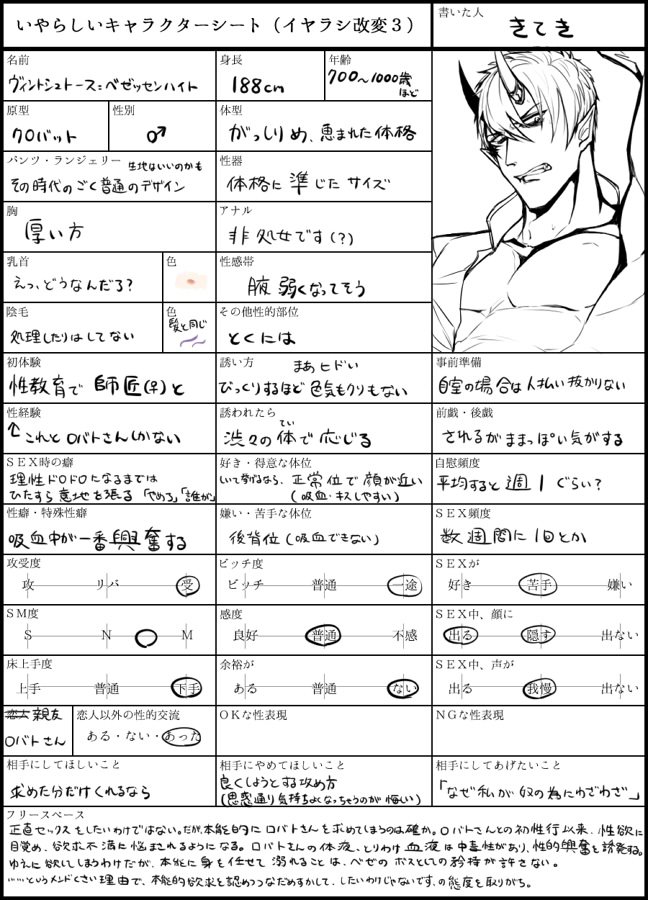 いやらしいキャラクターシート（イヤラシ改変３）
書いた人
きてき
名前
ヴィントシュトース=ベゼッセンハイト
身長
188cm
年齢
700～1000歳
ほど
原型
クロバット
性別
♂
体型
がっしりめ、恵まれた体格
パンツ・ランジェリー
生地はいいのかも
その時代のごく普通のデザイン
性器
体格に準じたサイズ
胸
厚い方
アナル
非処女です(?)
乳首
えっ、どうなんだろ?
色
性感帯
腋 弱くなってそう
陰毛
処理したりはしてない
色
髪と同じ
その他性的部位
とくには
初体験
性教育で師匠(♀)と
誘い方
まあヒドい
びっくりするほど色気もクソもない
事前準備
自室の場合は人払い抜かりない
性経験
↑これとロバトさんしかない
誘われたら
渋々の体で応じる
てい
前戯・後戯
されるがままっぽい気がする
ＳＥＸ時の癖
理性ドロドロになるまでは
ひたすら意地を張る「やめろ」「誰が」
好き・得意な体位
しいて挙げるなら、正常位で顔が近い
(吸血・キスしやすい)
自慰頻度
平均すると週1ぐらい?
性癖・特殊性癖
吸血中が一番興奮する
嫌い・苦手な体位
後背位(吸血できない)
ＳＥＸ頻度
数週間に1回とか
攻受度
攻 リバ 受
ビッチ度
ビッチ 普通 一途
ＳＥＸが
好き 苦手 嫌い
ＳＭ度
Ｓ Ｎ Ｍ
感度
良好 普通 不感
ＳＥＸ中、顔に
出る 隠す 出ない
床上手度
上手 普通 下手
余裕が
ある 普通 ない
ＳＥＸ中、声が
出る 我慢 出ない
恋人 親友
ロバトさん
恋人以外の性的交流
ある・ない・あった
ＯＫな性表現
ＮＧな性表現
相手にしてほしいこと
求めた分だけくれるなら
相手にやめてほしいこと
良くしようとする攻め方
(思惑通り気持ちよくなっちゃうのが悔しい)
相手にしてあげたいこと
「なぜ私が奴の為にわざわざ…」
フリースペース
正直セックスをしたいわけではない。だが、本能的にロバトさんを求めてしまうのは確か。ロバトさんとの初性行以来、性欲に
目覚め、欲求不満に悩まされるようになる。ロバトさんの体液、とりわけ血液は中毒性があり、性的興奮を誘発する。
ゆえに欲してしまうわけだが、本能に身を任せて溺れることは、ベゼのボスとしての矜持が許さない。
……というメンドくさい理由で、本能的欲求を認めつつなだめすかして、したいわけじゃないです、の態度を取りがち。